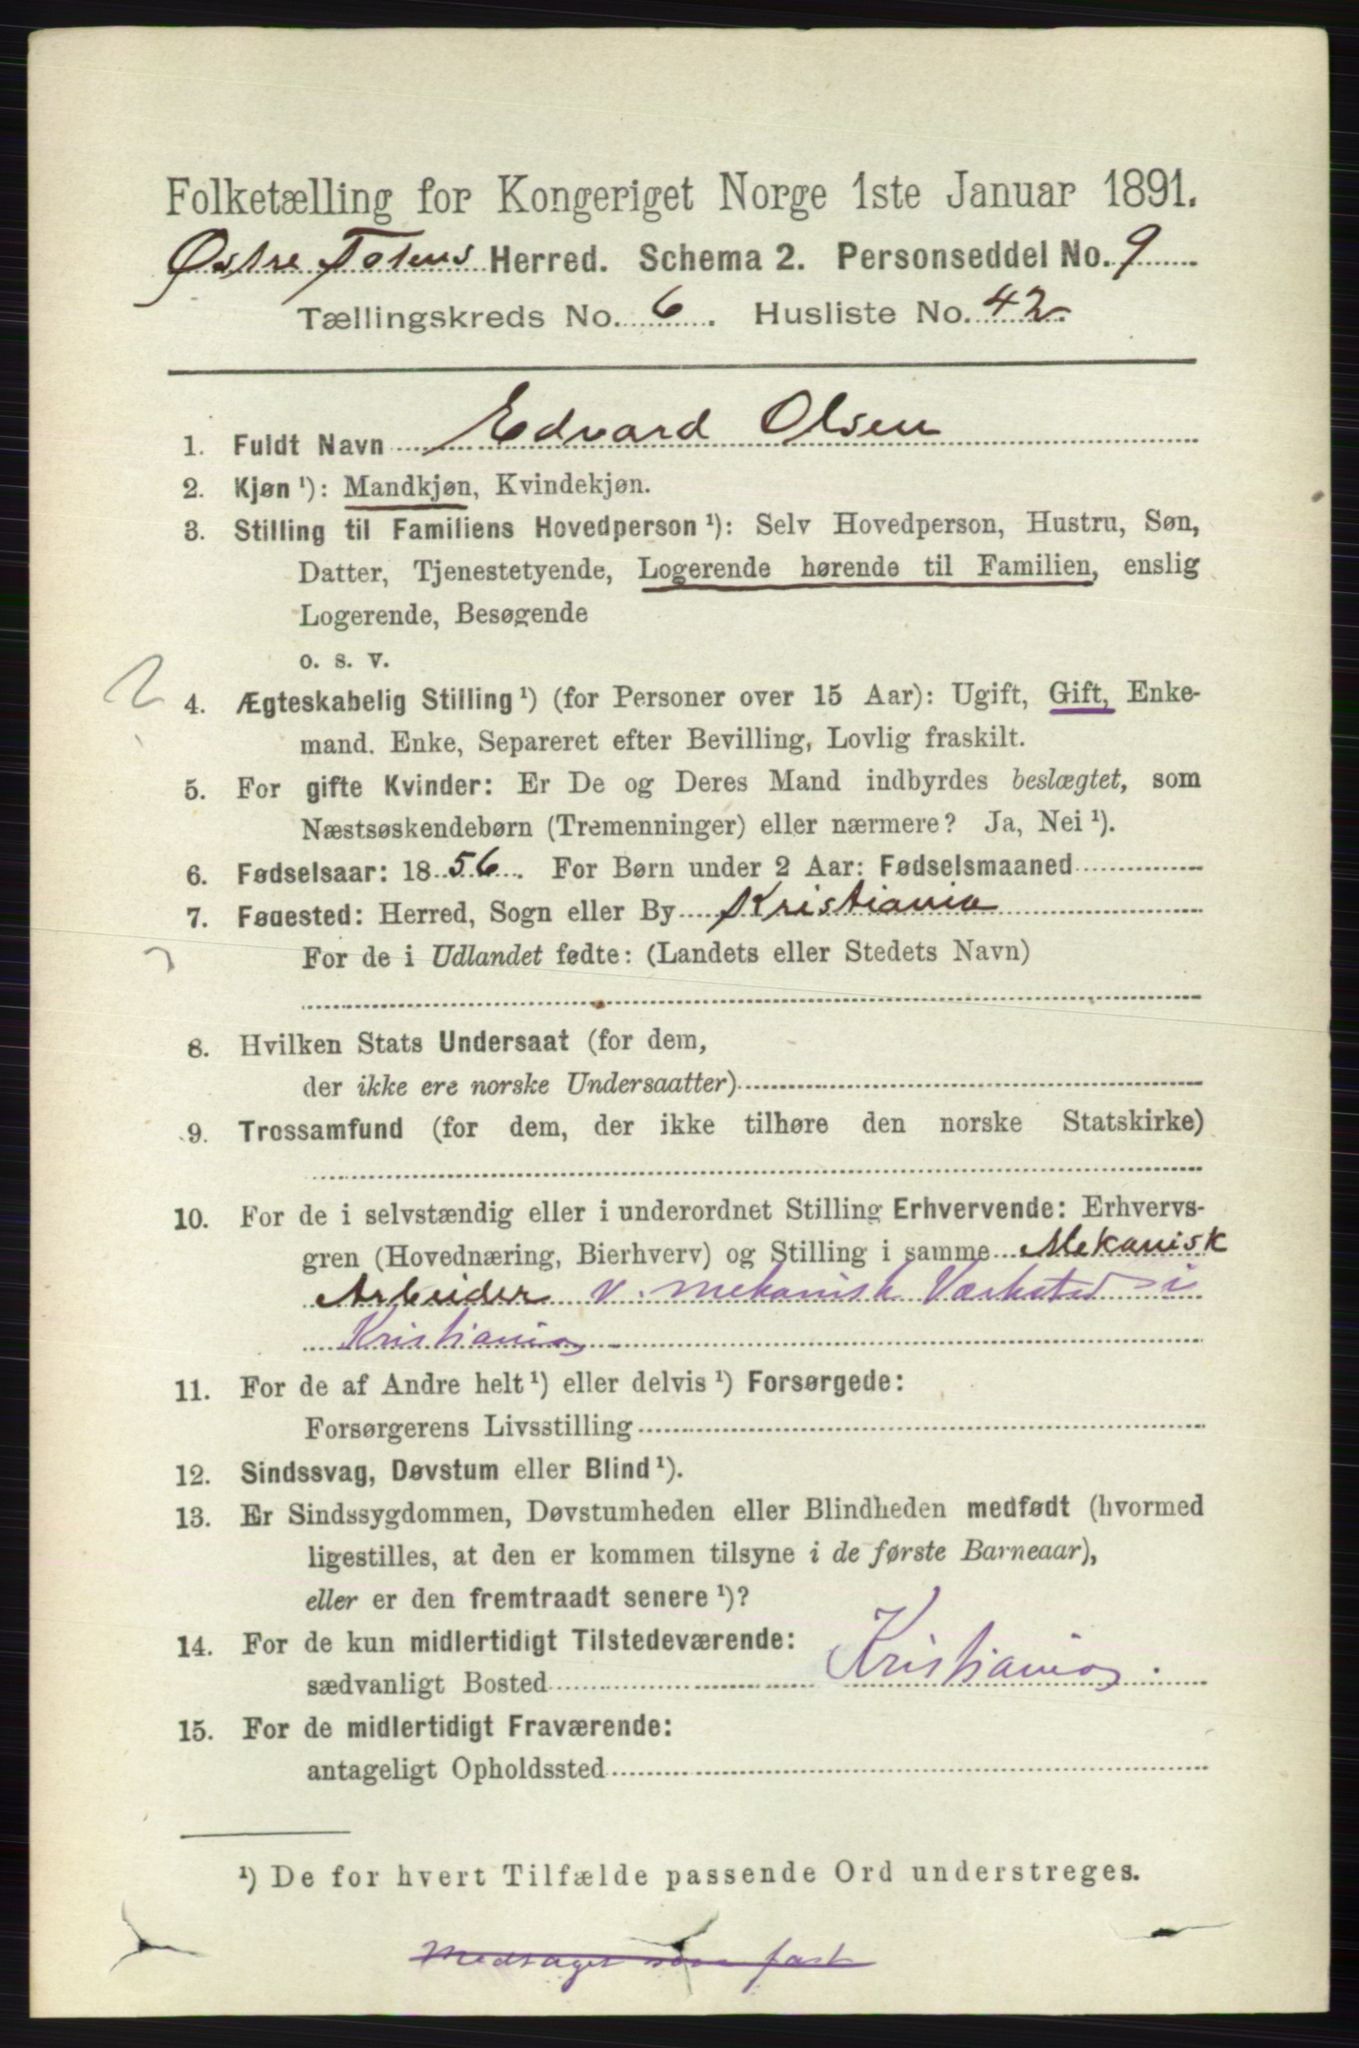 Folketælling for Kongeriget Norge 1ste Januar 1891.
Østre Totens Herred. Schema 2. Personseddel No. 9
Tællingskreds No. 6. Husliste No. 42.
1. Fuldt Navn Edvard Olsen
2. Kjøn ¹): Mandkjøn, Kvindekjøn.
3. Stilling til Familiens Hovedperson ¹): Selv Hovedperson, Hustru, Søn,
Datter, Tjenestetyende, Logerende hørende til Familien, enslig
Logerende, Besøgende
o. s. v.
2
4. Ægteskabelig Stilling ¹) (for Personer over 15 Aar): Ugift, Gift, Enke-
mand. Enke, Separeret efter Bevilling, Lovlig fraskilt.
5. For gifte Kvinder: Er De og Deres Mand indbyrdes beslægtet, som
Næstsøskendebørn (Tremenninger) eller nærmere? Ja, Nei ¹).
6. Fødselsaar: 1856. For Børn under 2 Aar: Fødselsmaaned
7. Fødested: Herred, Sogn eller By Kristiania
For de i Udlandet fødte: (Landets eller Stedets Navn)
8. Hvilken Stats Undersaat (for dem,
der ikke ere norske Undersaatter)
9. Trossamfund (for dem, der ikke tilhøre den norske Statskirke)
10. For de i selvstændig eller i underordnet Stilling Erhvervende: Erhvervs-
gren (Hovednæring, Bierhverv) og Stilling i samme Mekanisk
Arbeider v. mekanisk Værksted i
Kristiania
11. For de af Andre helt ¹) eller delvis ¹) Forsørgede:
Forsørgerens Livsstilling
12. Sindssvag, Døvstum eller Blind ¹).
13. Er Sindssygdommen, Døvstumheden eller Blindheden medfødt (hvormed
ligestilles, at den er kommen tilsyne i de første Barneaar),
eller er den fremtraadt senere ¹)?
14. For de kun midlertidigt Tilstedeværende:
sædvanligt Bosted Kristiania.
15. For de midlertidigt Fraværende:
antageligt Opholdssted
¹) De for hvert Tilfælde passende Ord understreges.
Medtaget som fast